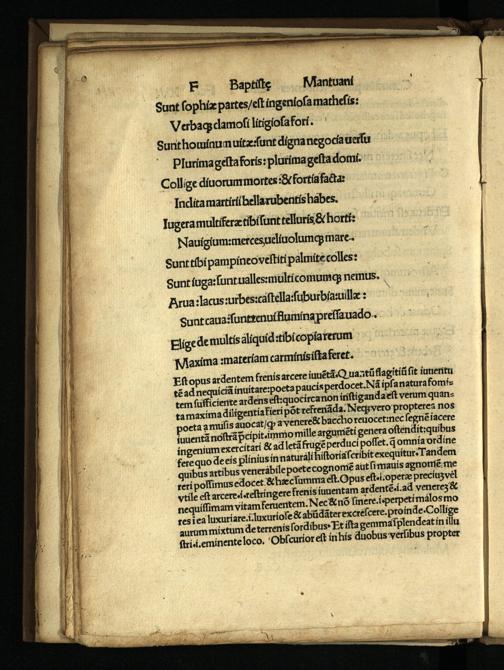 F Baptistę Mantuani
Sunt sophiæ partes/est ingeniosa mathesis:
Verbaq; clamosi litigiosa fori.
Sunt hominum uitæ: sunt digna negocia uersu
Plurima gesta foris: plurima gesta domi.
Collige diuorum mortes: & fortia facta:
Indita martirii bella rubentis habes.
Iugera multiferæ tibi sunt telluris, & horti:
Nauigium: merces, ueliuolumq; mare.
Sunt tibi pampineo vestiti palmite colles:
Sunt iuga: sunt ualles: multicomumq; nemus.
Arua: lacus: urbes: castella: suburbia: uillæ:
Sunt caua: sunt tenui flumina pressa uado.
Elige de multis aliquid: tibi copia rerum
Maxima: materiam carminis ista feret.
Est opus ardentem frenis arcere iuuẽtã. Quãtũ flagitiũ sit iuuentu
tẽ ad nequiciã inuitare: poeta paucis perdocet. Nã ipsa natura fomi=
tem sufficiente ardens est: quocirca non instiganda est verum quan=
ta maxima diligentia fieri põt refrenãda. Neq; vero propterea nos
poeta a musis auocat/ꝙ a venere & baccho reuocet: nec segnẽ iacere
iuuentã nostrã p̃cipit. immo mille argumẽti genera ostendit: quibus
ingenium exercitari & ad letã frugẽ perduci posset. q̃ omnia ordine
fere quo de eis plinius in naturali historia scribit exequitur. Tandem
quibus artibus venerabile poete cognomẽ aut si mauis agnomẽ me
reri possimus edocet & hæc summa est. Opus est.i. operæ preciũ vĕl
vtile est arcere.i. restringere frenis iuuentam ardentẽ.i. ad venerẽ &
nequissimam vitam feruentem. Nec & nõ sinere.i. perpeti malos mo
res i ea luxuriare.i. luxuriose & abũdãter excrescere. proinde. Collige
aurum mixtum de terrenis sordibus. Et ista gemma splendeat in illu
stri.i. eminente loco. Obscurior est in his duobus versibus propter